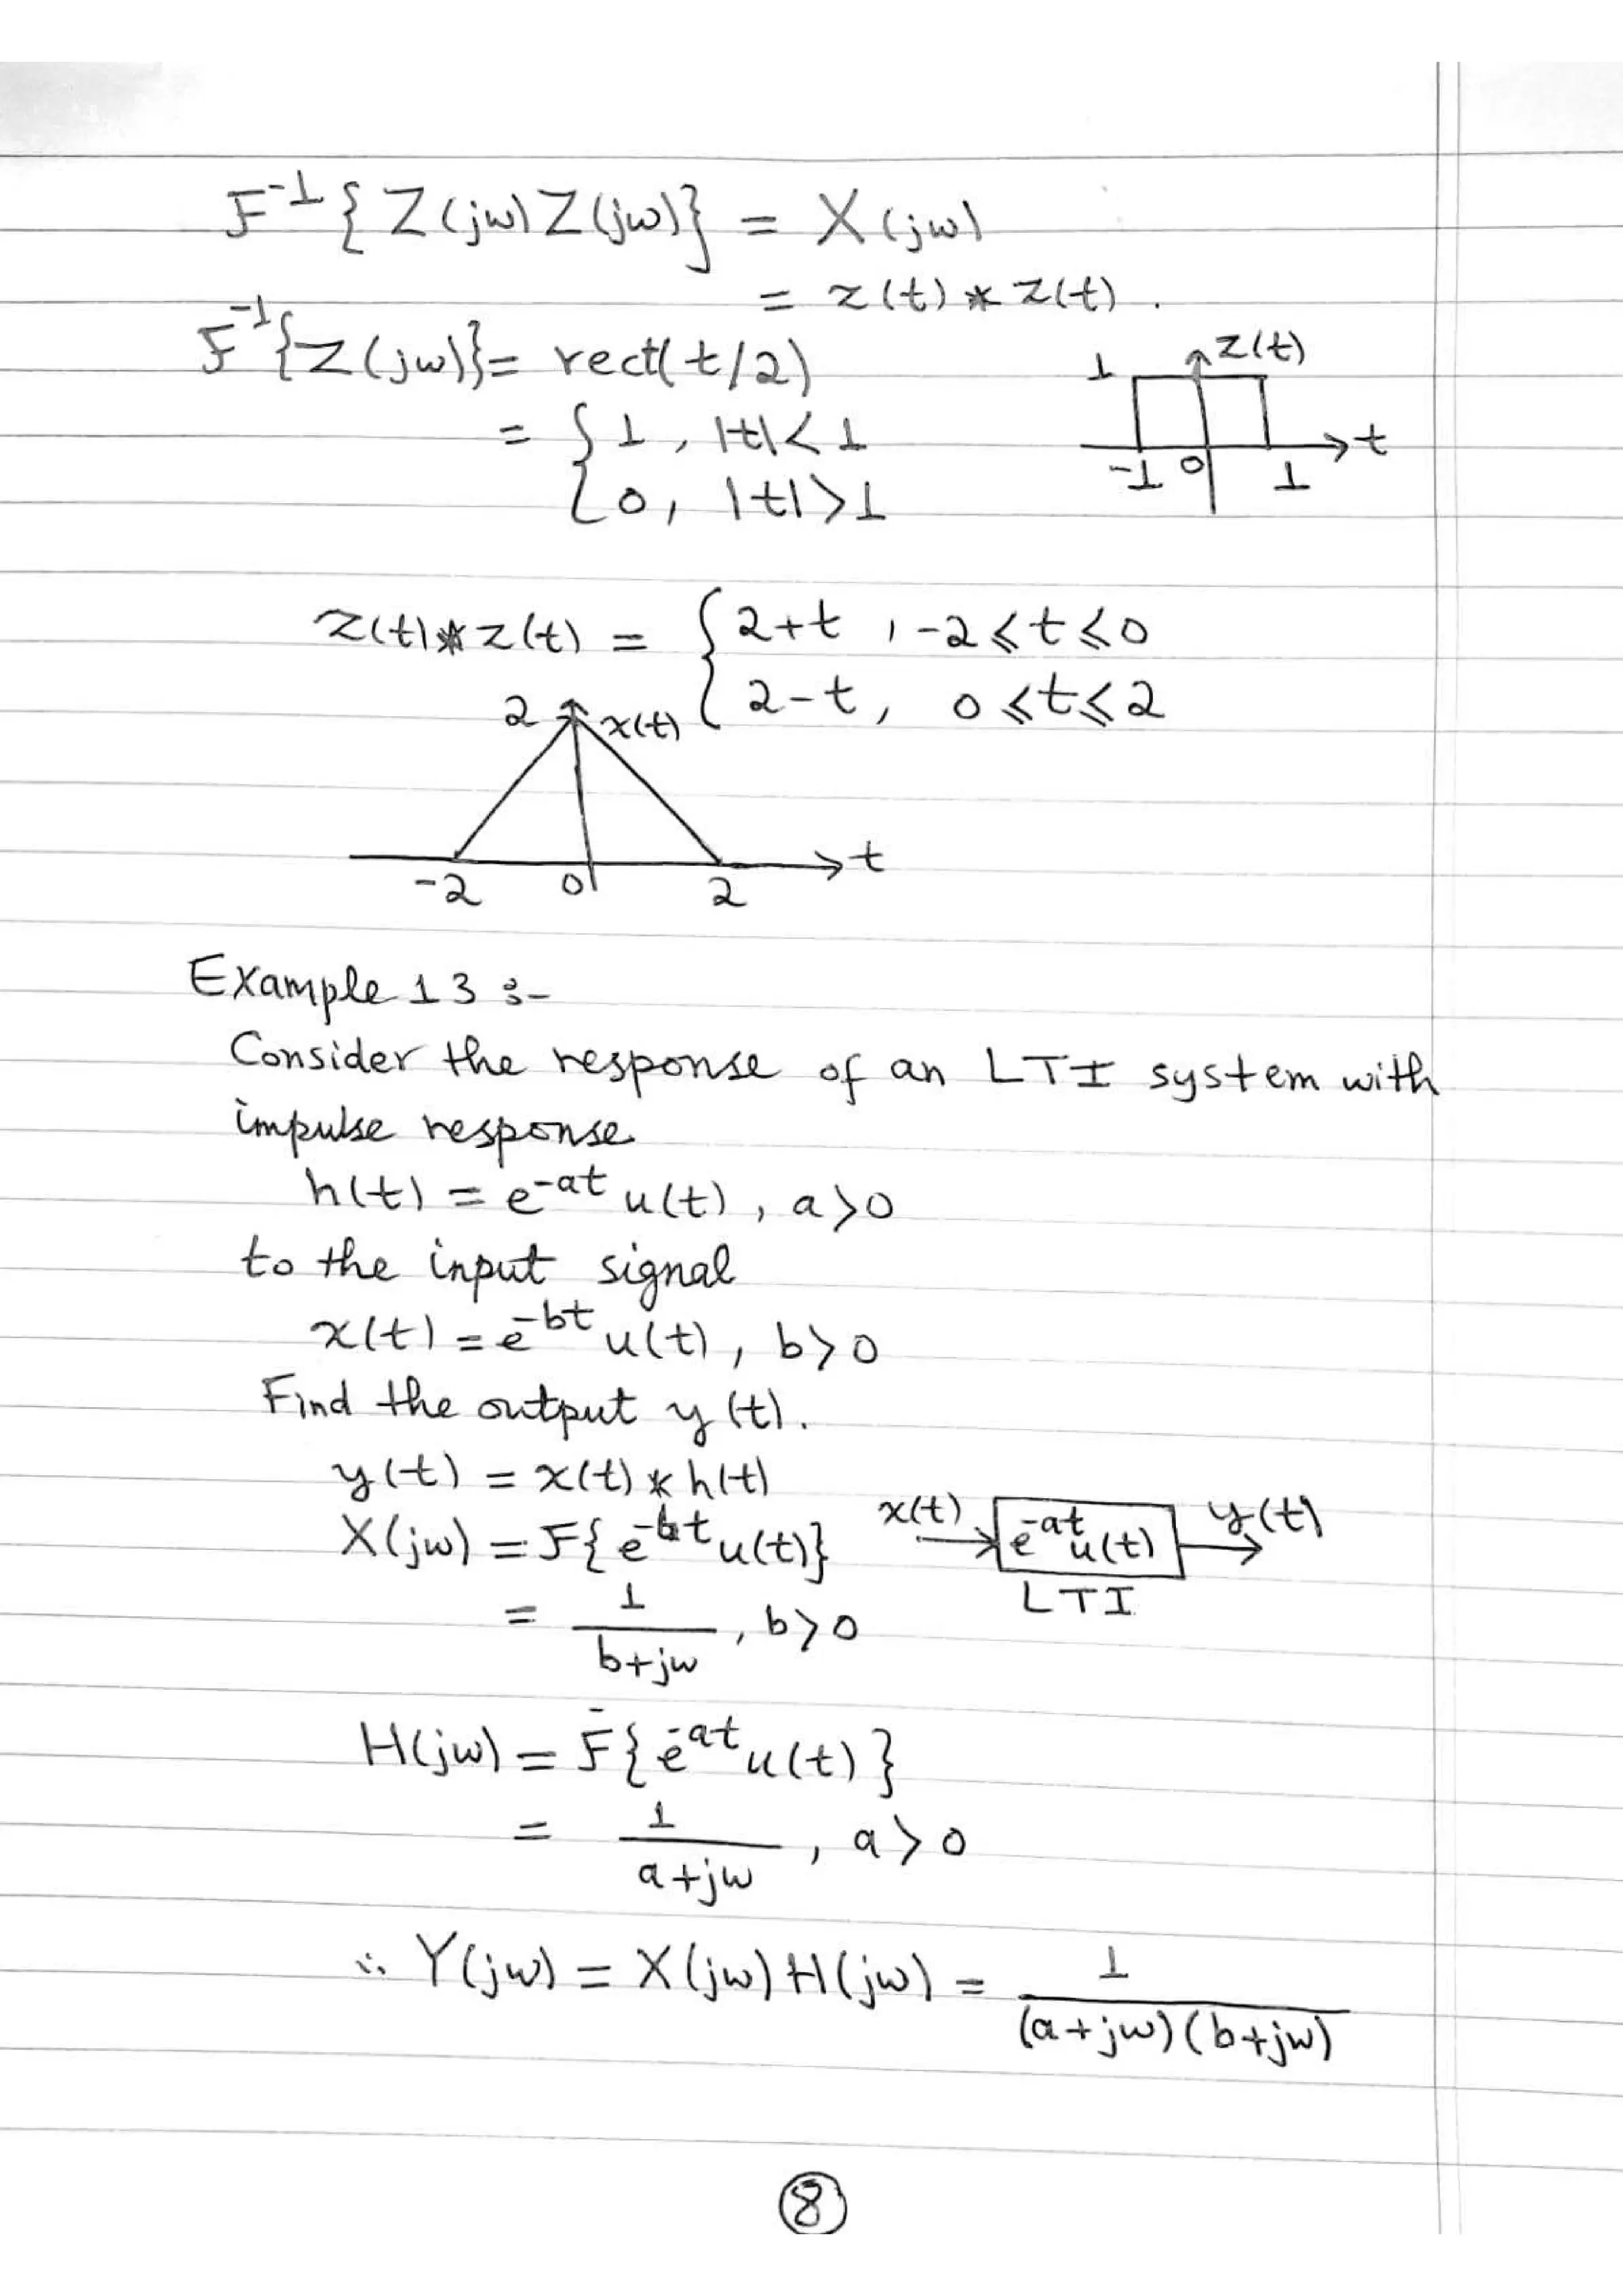 F⁻¹{Z(jω)Z(jω)} = X(jω)
= z(t) * z(t).
F⁻¹{Z(jω)} = rect(t/2)
= { 1, |t|<1
0, |t|>1
z(t)
1
-1 0 1
t
z(t)*z(t) = { 2+t, -2⩽t⩽0
2-t, 0⩽t⩽2
2 x(t)
t
-2 0 2
Example 13 :-
Consider the response of an LTI system with
impulse response
h(t) = e^{-at} u(t), a>0
to the input signal
x(t) = e^{-bt} u(t), b>0
Find the output y(t).
y(t) = x(t) * h(t)
X(jω) = F{e^{-bt} u(t)}
= 1/(b+jω), b>0
x(t) e^{-at} u(t) y(t)
LTI
H(jω) = F{e^{-at} u(t)}
= 1/(a+jω), a>0
∴ Y(jω) = X(jω) H(jω) = 1/((a+jω)(b+jω))
8